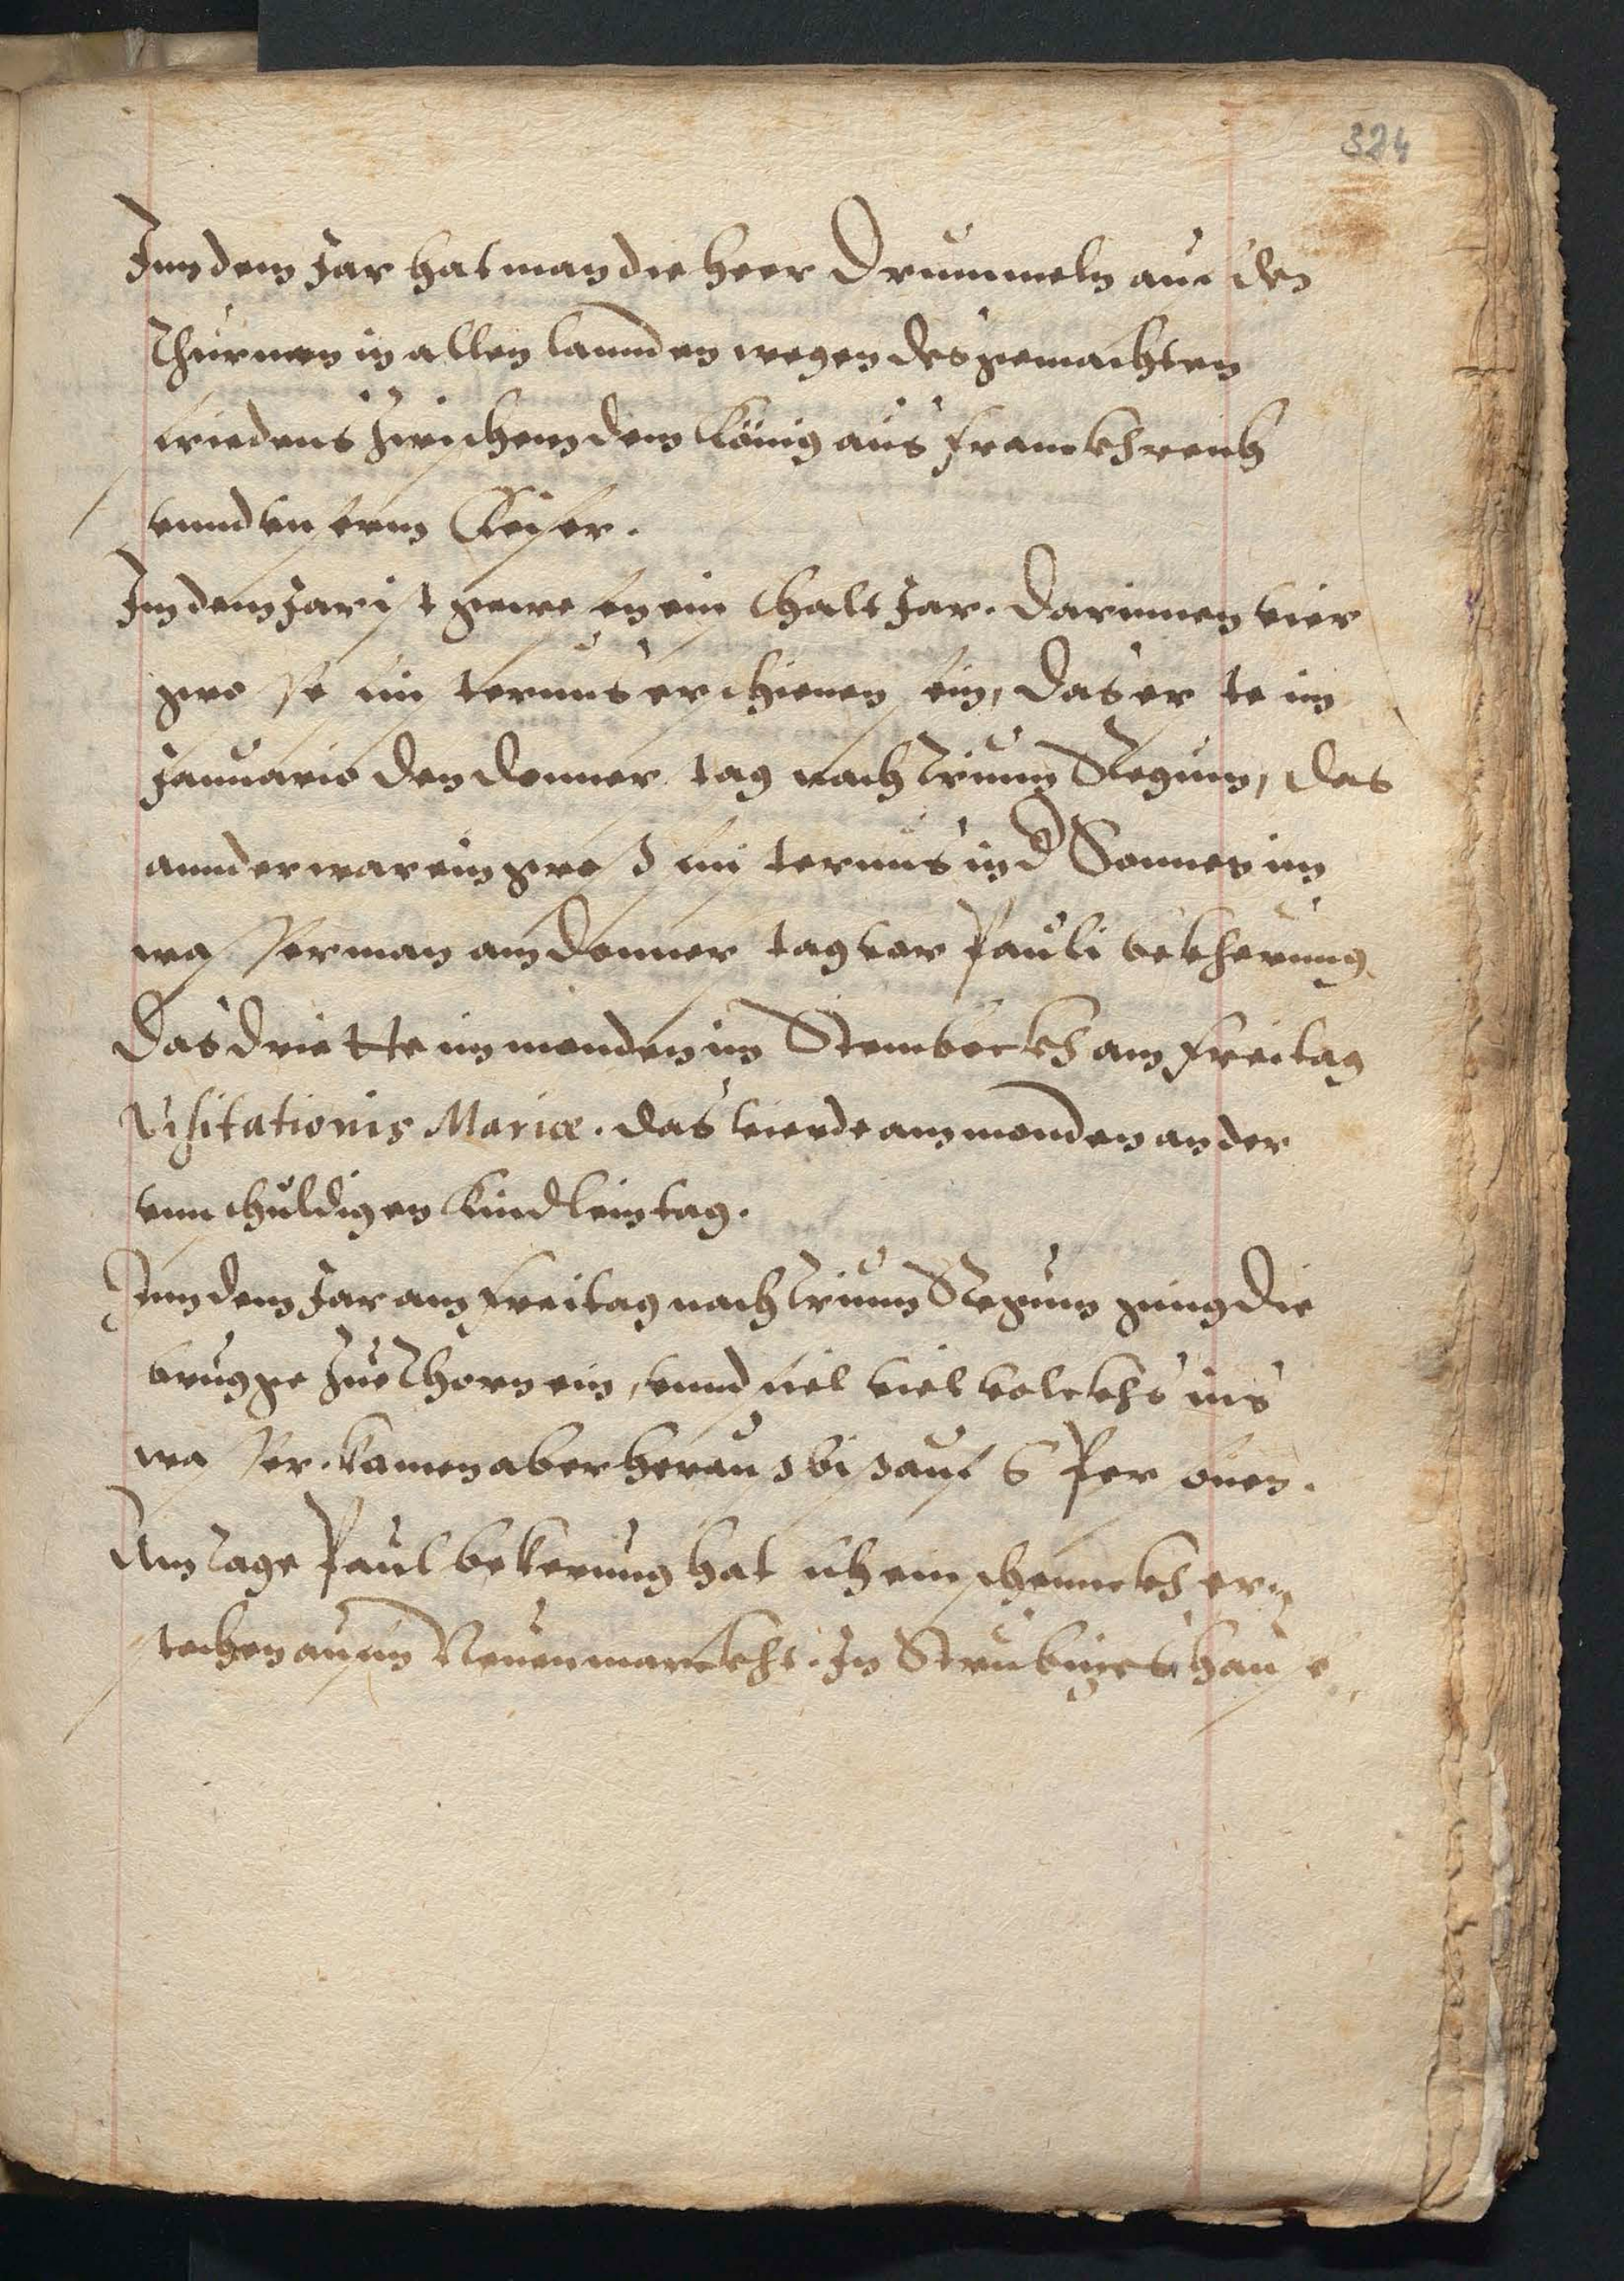 324
Inn dem Jar hat man die heer Drummeln auf den
Thurnen in allen lannden wegen des gemachten
friedens zwischenn dem König aus Franckhreich
vnnd vnserm Keiser.
Inn dem Jar ist gewesen ein Schalt Jar. Darinnen vier
grosse finsternus erschienen sein, Das erste im
Januario den Donnerstag nach Trium Regum, das
annder war ein groß finsternus in d Sonnen im
wasserman am Donnerstag vor Pauli bekherung
Das driette im monden im Steinbockh am Freitag
Visitationis Mariæ. das vierde am monden an der
vnnschuldigen Kindlein tag.
Inn dem Jar am Freitag nach Trium Regum ging die
brugge zue Thorn ein, vnnd fiel viel volckhs ins
wasser. kamen aber herauß biß auf 6 Personen.
Am Tage Paul bekerung hat sich ein schennckh er-
stochen auf m Neuenmarckht. In Strubigers hause